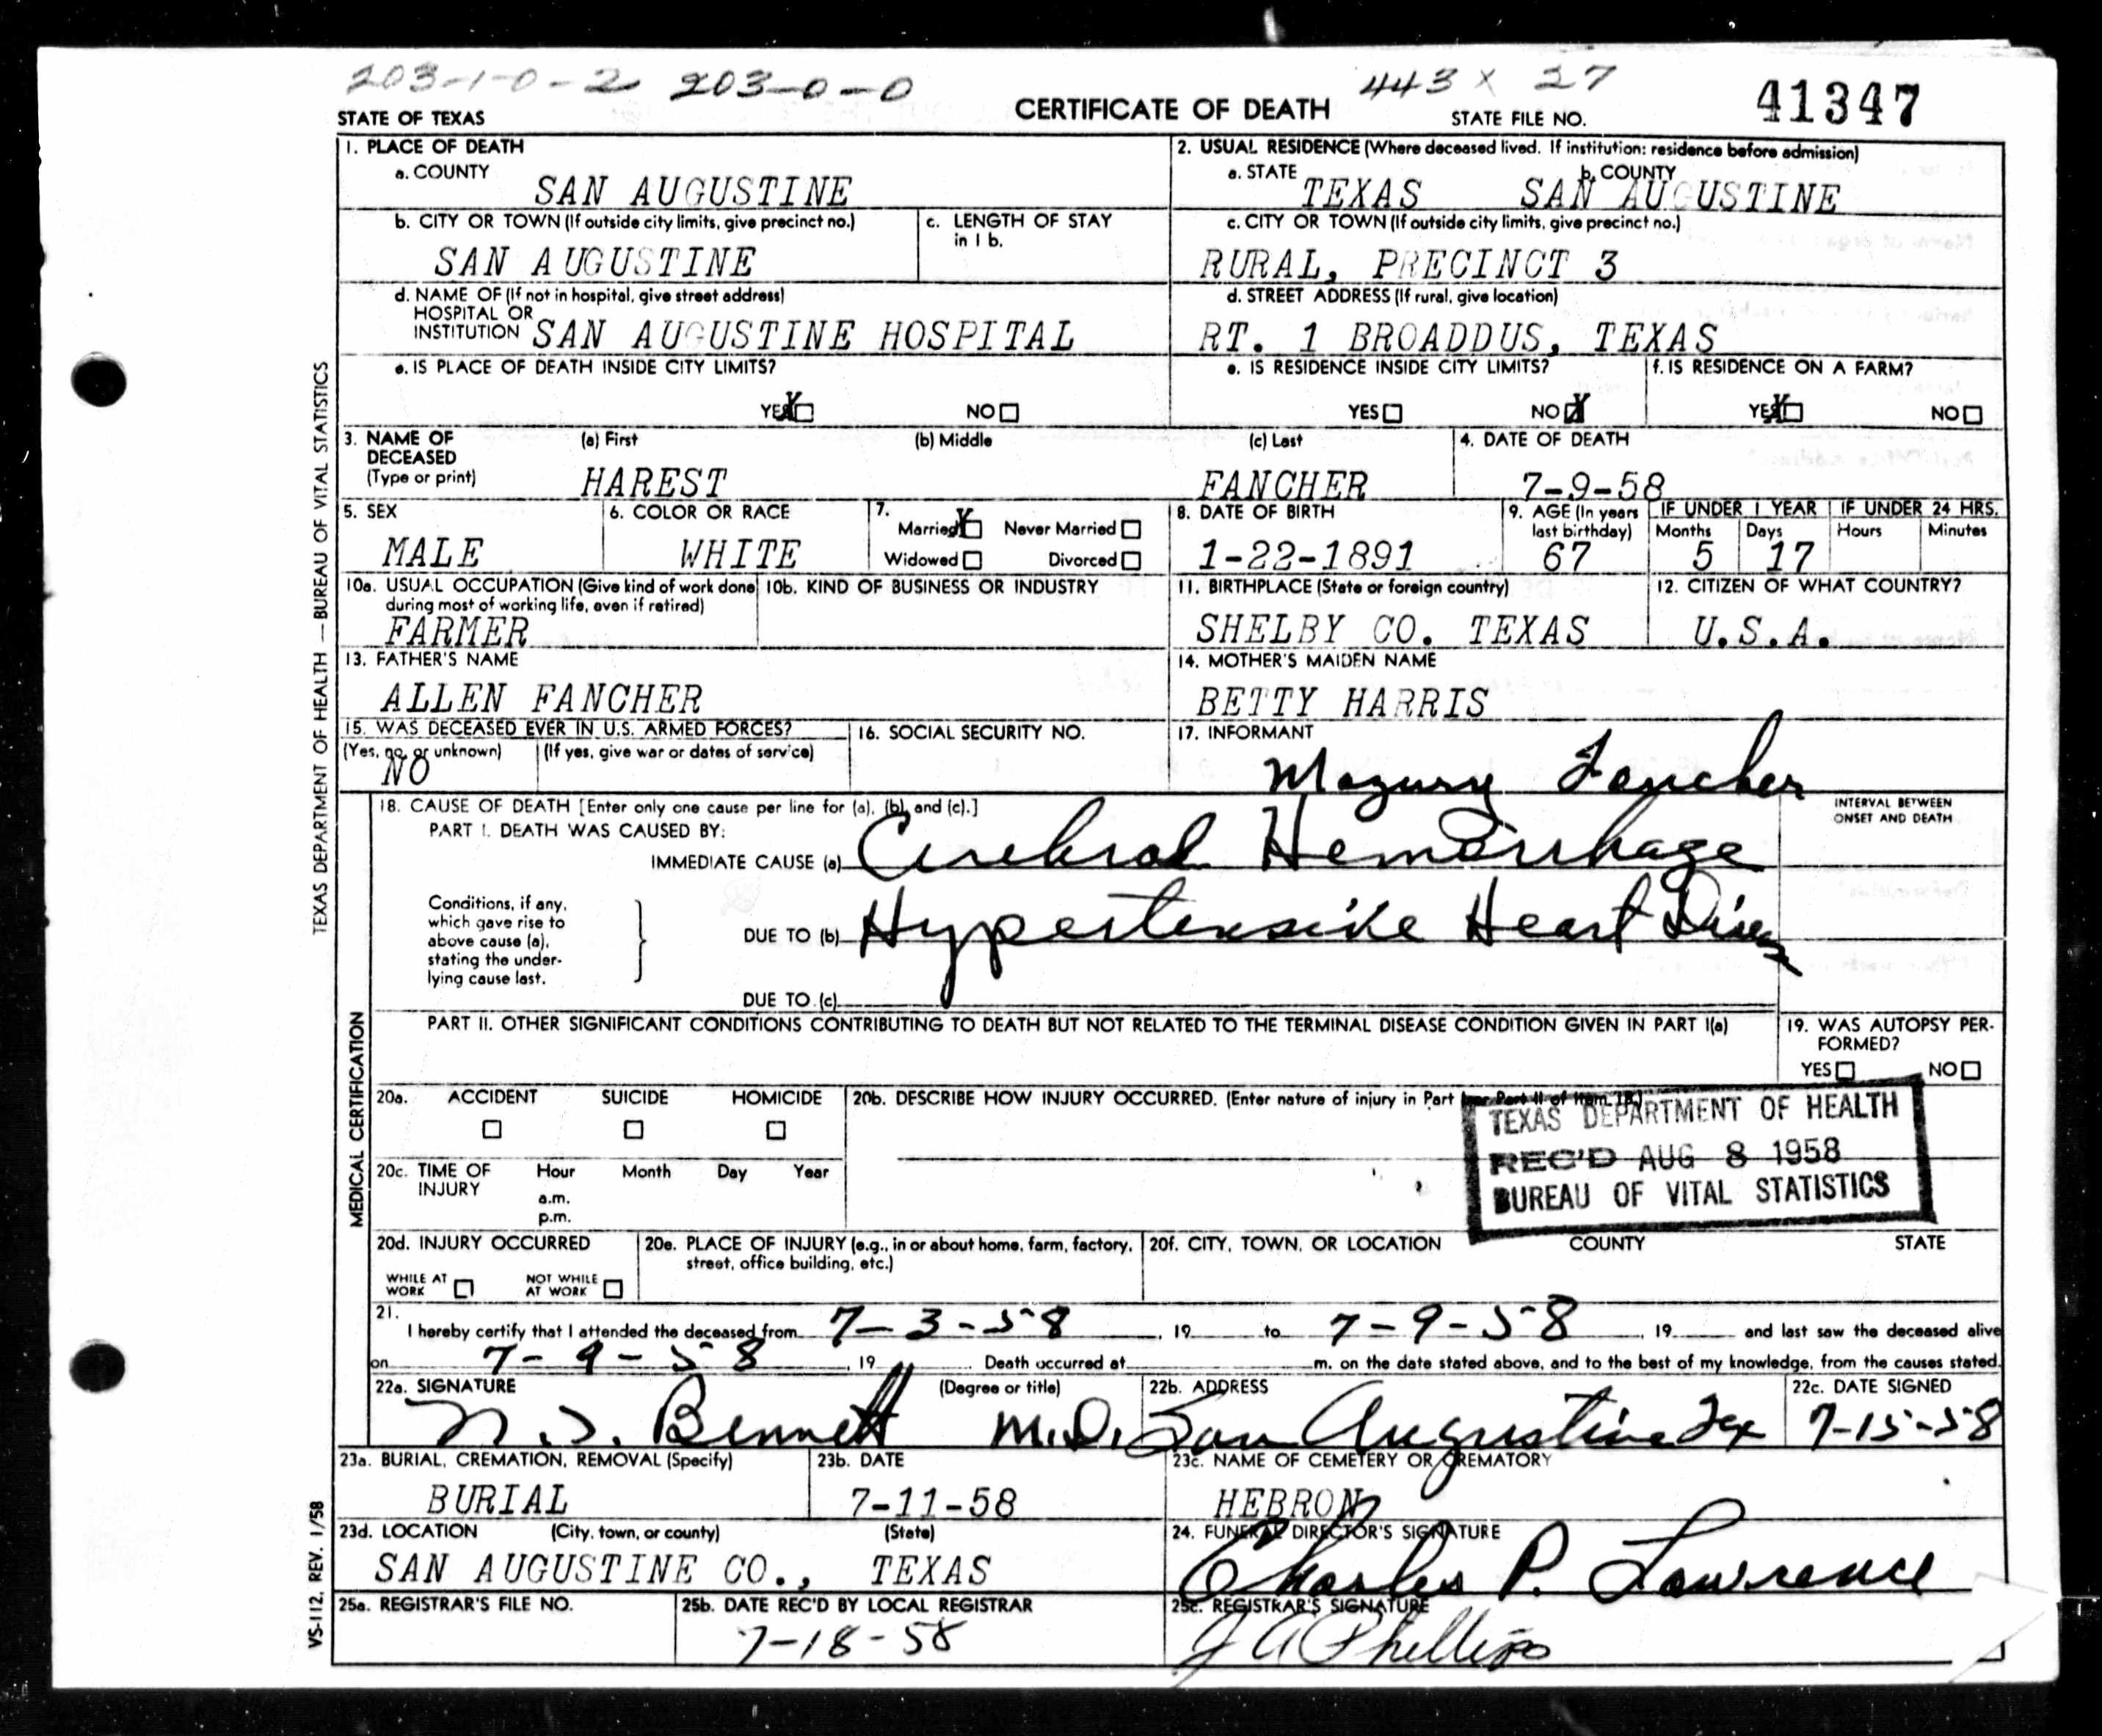 203-1-0-2 203-0-0 443 X 27
STATE OF TEXAS CERTIFICATE OF DEATH STATE FILE NO. 41347
1. PLACE OF DEATH
a. COUNTY SAN AUGUSTINE
2. USUAL RESIDENCE (Where deceased lived. If institution: residence before admission)
a. STATE TEXAS b. COUNTY SAN AUGUSTINE
b. CITY OR TOWN (If outside city limits, give precinct no.) SAN AUGUSTINE
c. LENGTH OF STAY in 1 b.
c. CITY OR TOWN (If outside city limits, give precinct no.)
RURAL, PRECINCT 3
d. NAME OF (If not in hospital, give street address)
HOSPITAL OR
INSTITUTION SAN AUGUSTINE HOSPITAL
d. STREET ADDRESS (If rural, give location)
RT. 1 BROADDUS, TEXAS
e. IS PLACE OF DEATH INSIDE CITY LIMITS?
YES X NO
e. IS RESIDENCE INSIDE CITY LIMITS?
YES NO X
f. IS RESIDENCE ON A FARM?
YES X NO
3. NAME OF DECEASED (Type or print)
(a) First (b) Middle (c) Last
HAREST FANCHER
4. DATE OF DEATH
7-9-58
5. SEX
MALE
6. COLOR OR RACE
WHITE
7. Married X Never Married
Widowed Divorced
8. DATE OF BIRTH
1-22-1891
9. AGE (In years last birthday)
67
IF UNDER 1 YEAR IF UNDER 24 HRS.
Months Days Hours Minutes
5 17
10a. USUAL OCCUPATION (Give kind of work done during most of working life, even if retired)
FARMER
10b. KIND OF BUSINESS OR INDUSTRY
11. BIRTHPLACE (State or foreign country)
SHELBY CO. TEXAS
12. CITIZEN OF WHAT COUNTRY?
U.S.A.
13. FATHER'S NAME
ALLEN FANCHER
14. MOTHER'S MAIDEN NAME
BETTY HARRIS
15. WAS DECEASED EVER IN U.S. ARMED FORCES?
(Yes, no, or unknown) (If yes, give war or dates of service)
NO
16. SOCIAL SECURITY NO.
17. INFORMANT
Mozury Fancher
18. CAUSE OF DEATH [Enter only one cause per line for (a), (b), and (c).]
INTERVAL BETWEEN ONSET AND DEATH
PART I. DEATH WAS CAUSED BY:
IMMEDIATE CAUSE (a) Cerebral Hemorrhage
Conditions, if any,
which gave rise to
above cause (a),
stating the under-
lying cause last.
DUE TO (b) Hypertensive Heart Diseas
DUE TO (c)
PART II. OTHER SIGNIFICANT CONDITIONS CONTRIBUTING TO DEATH BUT NOT RELATED TO THE TERMINAL DISEASE CONDITION GIVEN IN PART I(a)
19. WAS AUTOPSY PER-
FORMED?
YES NO
20a. ACCIDENT SUICIDE HOMICIDE
20b. DESCRIBE HOW INJURY OCCURRED. (Enter nature of injury in Part I or Part II of item 18.)
TEXAS DEPARTMENT OF HEALTH
REC'D AUG 8 1958
BUREAU OF VITAL STATISTICS
20c. TIME OF INJURY Hour Month Day Year
a.m.
p.m.
20d. INJURY OCCURRED
WHILE AT WORK NOT WHILE AT WORK
20e. PLACE OF INJURY (e.g., in or about home, farm, factory, street, office building, etc.)
20f. CITY, TOWN, OR LOCATION COUNTY STATE
21.
I hereby certify that I attended the deceased from 7-3-58, 19 to 7-9-58, 19 and last saw the deceased alive
on 7-9-58, 19 . Death occurred at m. on the date stated above, and to the best of my knowledge, from the causes stated.
22a. SIGNATURE (Degree or title)
N. J. Bennett M.D.
22b. ADDRESS
San Augustine Tex
22c. DATE SIGNED
7-15-58
23a. BURIAL, CREMATION, REMOVAL (Specify)
BURIAL
23b. DATE
7-11-58
23c. NAME OF CEMETERY OR CREMATORY
HEBRON
23d. LOCATION (City, town, or county) (State)
SAN AUGUSTINE CO., TEXAS
24. FUNERAL DIRECTOR'S SIGNATURE
Charles P. Lawrence
25a. REGISTRAR'S FILE NO.
25b. DATE REC'D BY LOCAL REGISTRAR
7-18-58
25c. REGISTRAR'S SIGNATURE
J A Phillips
TEXAS DEPARTMENT OF HEALTH — BUREAU OF VITAL STATISTICS
MEDICAL CERTIFICATION
VS-112, REV. 1/58